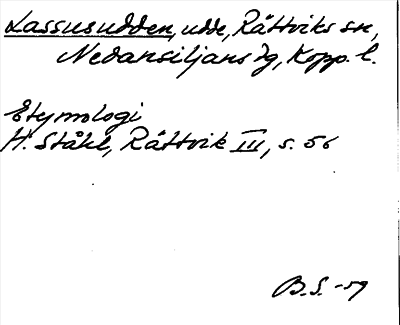 Lassusudden, udde, Rättviks sn,
Nedansiljans dg, Kopp. l.
Etymologi
H. Ståhl, Rättvik III, s. 56
B.S. -59